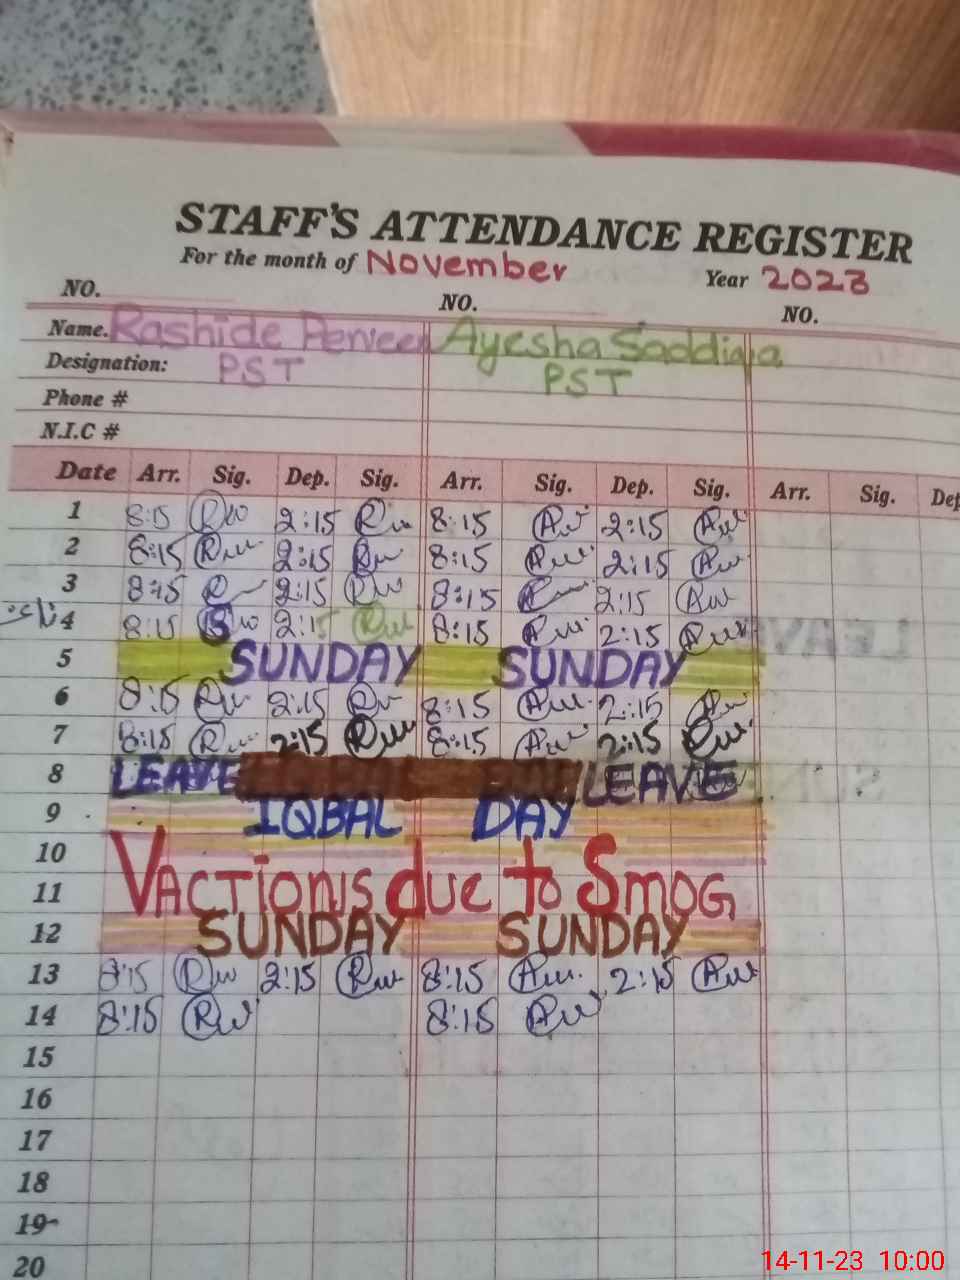 STAFF'S ATTENDANCE REGISTER
For the month of November Year 2023
NO. NO. NO.
Name. Rashide Perveen Ayesha Saddiqa
Designation: PST PST
Phone #
N.I.C #
Date Arr. Sig. Dep. Sig. Arr. Sig. Dep. Sig. Arr. Sig. Dep
1 8:15 2:15 8:15 2:15
2 8:15 2:15 8:15 2:15
3 8:15 2:15 8:15 2:15
4 8:15 2:15 8:15 2:15
5 SUNDAY SUNDAY
6 8:15 2:15 8:15 2:15
7 8:15 2:15 8:15 2:15
8 LEAVE LEAVE
9 IQBAL DAY
10
11 VACTIONS due to SMOG
12 SUNDAY SUNDAY
13 8:15 2:15 8:15 2:15
14 8:15 8:15
15
16
17
18
19
20
14-11-23 10:00